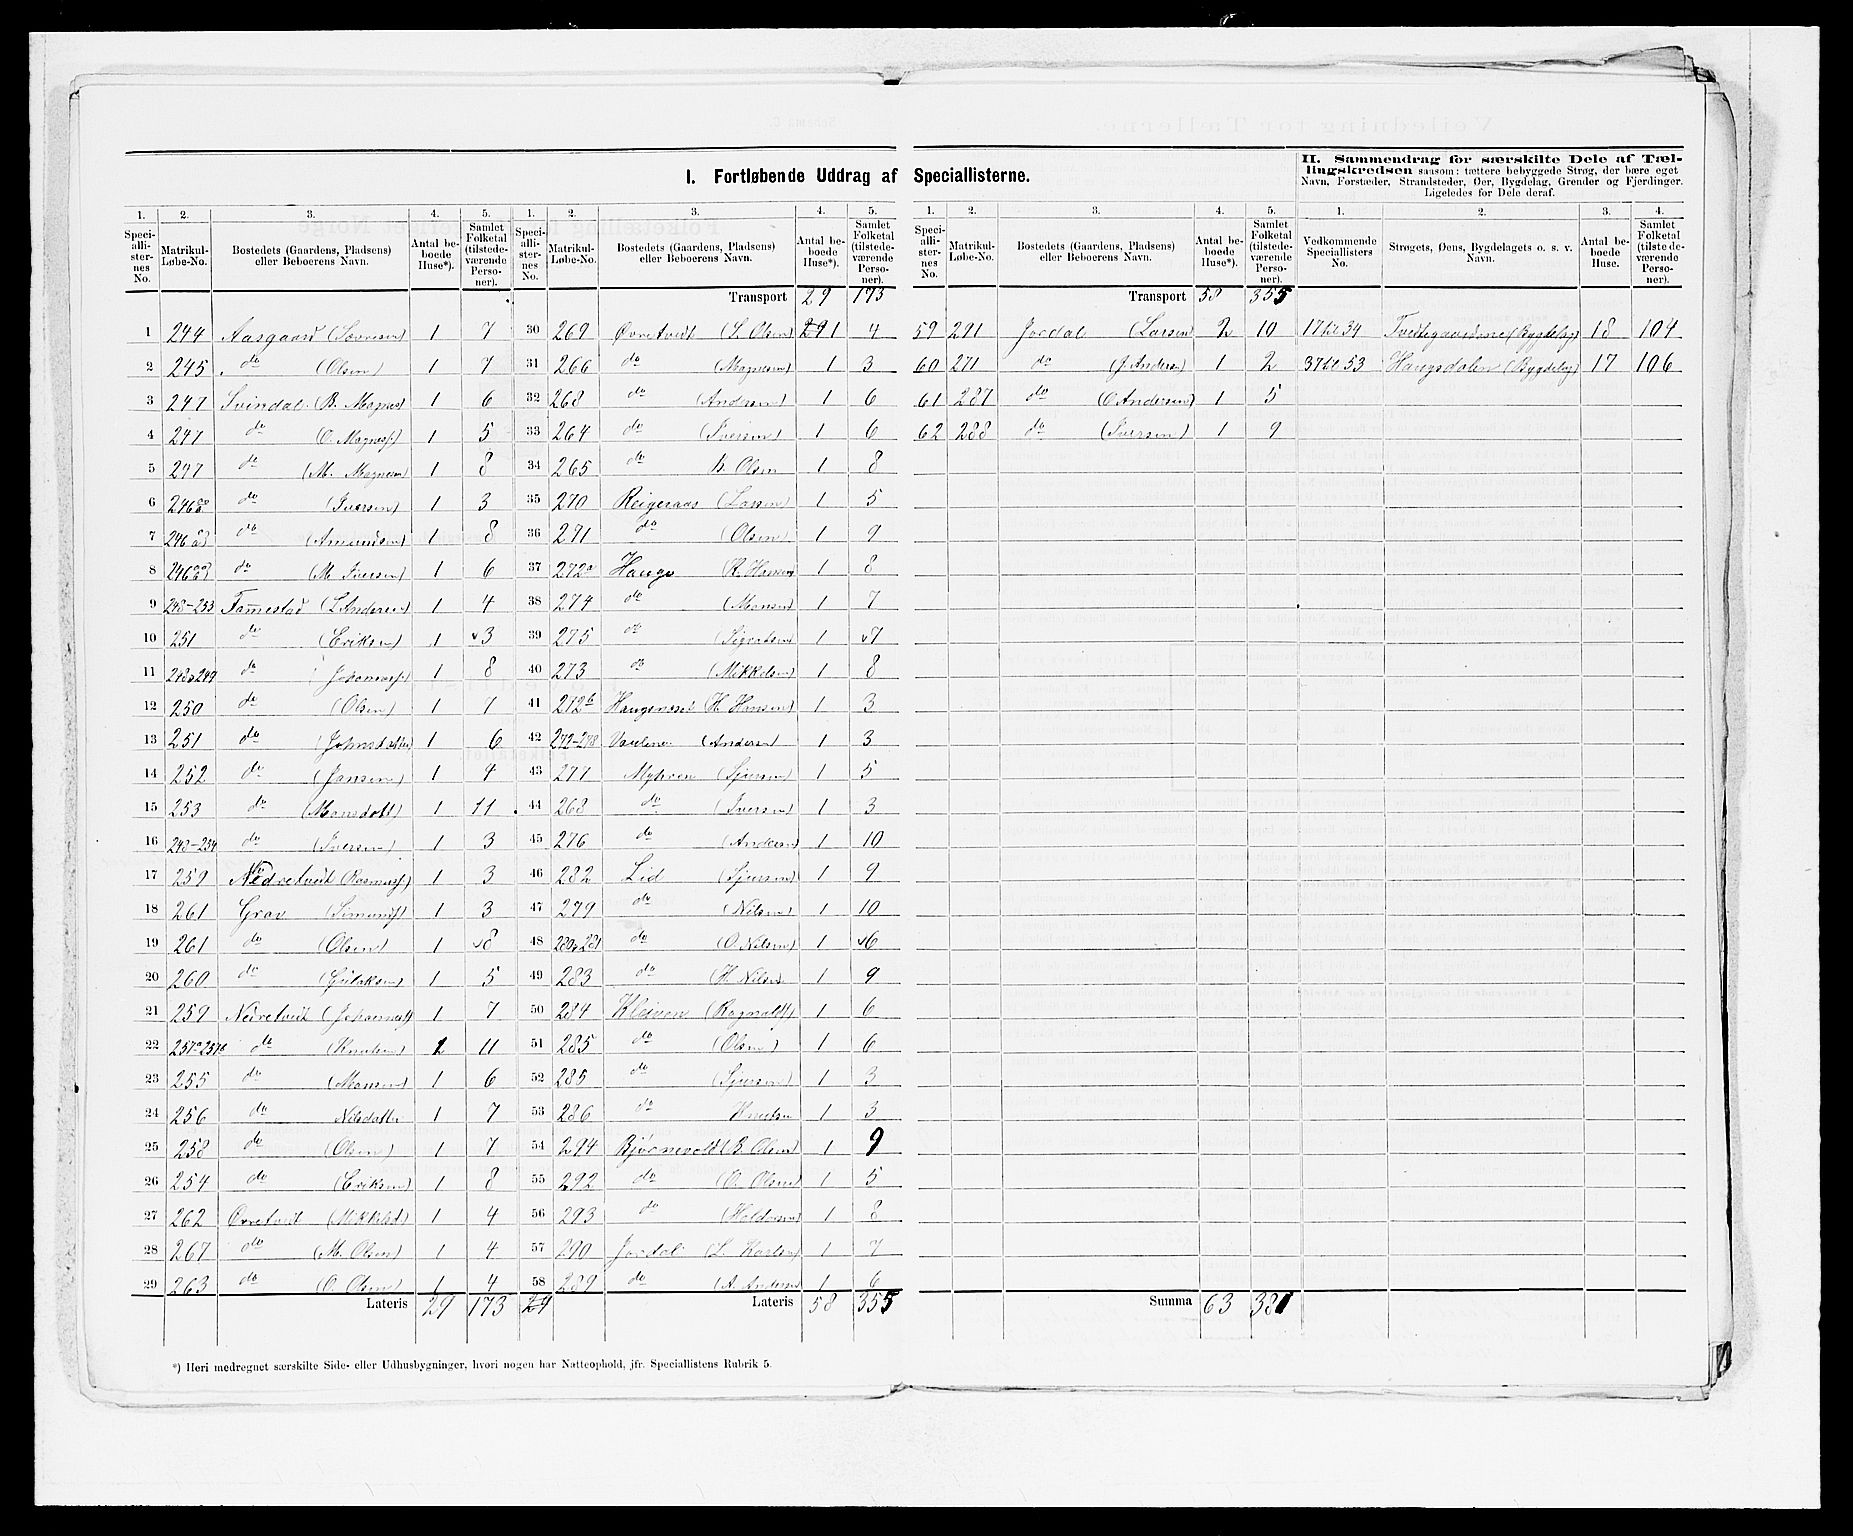 I. Fortløbende Uddrag af Speciallisterne.
II. Sammendrag for særskilte Dele af Tæl-
lingskredsen saasom: tættere bebyggede Strøg, der bære eget
Navn, Forstæder, Strandsteder, Øer, Bygdelag, Grender og Fjerdinger.
Ligeledes for Dele deraf.
1. 2. 3. 4. 5. 1. 2. 3. 4. 5. 1. 2. 3. 4. 5. 1. 2. 3. 4.
Speciallisternes No. Matrikul-Løbe-No. Bostedets (Gaardens, Pladsens) eller Beboerens Navn. Antal beboede Huse*). Samlet Folketal (tilstedeværende Personer).
Speciallisternes No. Matrikul-Løbe-No. Bostedets (Gaardens, Pladsens) eller Beboerens Navn. Antal beboede Huse*). Samlet Folketal (tilstedeværende Personer).
Speciallisternes No. Matrikul-Løbe-No. Bostedets (Gaardens, Pladsens) eller Beboerens Navn. Antal beboede Huse*). Samlet Folketal (tilstedeværende Personer).
Vedkommende Speciallisters No. Strøgets, Øens, Bygdelagets o. s. v. Navn. Antal beboede Huse. Samlet Folketal (tilstedeværende Personer).
1 244 Aasgaard 1 7
2 245 do (Olsen) 1 7
3 247 Svindal (B. Magnes) 1 6
4 247 do (O. Magness) 1 5
5 247 do (M. Magnesen) 1 8
6 do (Iversen) 1 3
7 do (Amundsen) 1 8
8 do (M. Iversen) 1 6
9 248-253 (L. Andersen) 1 4
10 251 do (Eriksen) 1 3
11 do 1 8
12 250 do (Olsen) 1 7
13 251 do (Johnsdatter) 1 6
14 252 do (Jansen) 1 4
15 253 do (Monsdatt) 1 11
16 do (Iversen) 1 3
17 259 Nedretvidt (Rasmuss) 1 3
18 261 Grav (Simuns) 1 3
19 261 do (Olsen) 1 8
20 260 do 1 5
21 259 Nedretvedt 1 7
22 do (Knudsen) 2 11
23 255 do (Monsen) 1 6
24 256 do Nilsdatter 1 7
25 258 do (Olsen) 1 7
26 254 do (Eriksen) 1 8
27 262 Øvretvedt 1 4
28 267 do (M. Olsen) 1 4
29 263 do (O. Olsen) 1 4
Lateris 29 173 29
Transport 29 173
30 269 Øvretvedt (L. Olsen) 1 4
31 266 do (Magnesen) 1 3
32 268 do (Andersen) 1 6
33 264 do (Iversen) 1 6
34 265 do B. Olsen 1 8
35 270 Reigeraas (Larsen) 1 5
36 271 do (Olsen) 1 9
37 272a Hauge (R. Hansen) 1 8
38 274 do (Monsen) 1 7
39 275 do 1 7
40 273 do (Mikkelsen) 1 8
41 272b Haugeneset (H. Hansen) 1 3
42 (Andersen) 1 3
43 277 Myhren (Sjursen) 1 5
44 268 do (Iversen) 1 3
45 276 do (Andersen) 1 10
46 282 Lid (Sjursen) 1 9
47 279 do (Nilsen) 1 10
48 280, 281 do (O. Nilsen) 1 6
49 283 do (H. Nilsen) 1 9
50 284 Kleiven (Ragnaldt) 1 6
51 285 do (Olsen) 1 6
52 285 do (Sjursen) 1 3
53 286 do Knudsen 1 3
54 294 Bjørnevoldt (B. Olsen) 1 9
55 292 do (O. Olsen) 1 5
56 293 do (Haldorsen) 1 8
57 290 Jordal (L. Karlsen) 1 7
58 289 do (A. Andersen) 1 6
Lateris 58 355
Transport 58 355
59 291 Jordal (Larsen) 2 10
60 271 do (J. Andersen) 1 2
61 287 do (O. Andersen) 1 5
62 288 do (Iversen) 1 9
Summa 63 381
17 til 34 Tvedtegaardene (Bygdelag) 18 104
37 til 53 Haugsdalen (Bygdelag) 17 106
*) Heri medregnet særskilte Side- eller Udhusbygninger, hvori nogen har Natteophold, jfr. Speciallistens Rubrik 5.